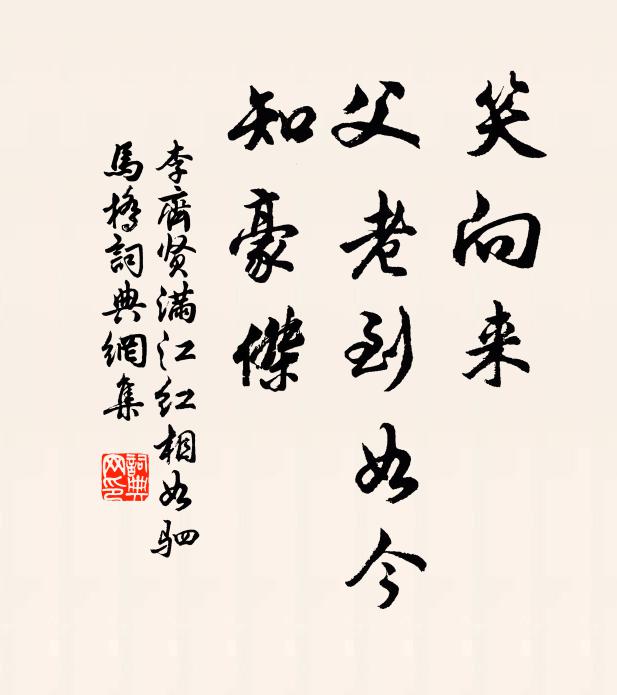 笑向来
父老到如今
知豪傑
李齊贤满江红相如驷
馬橋詞典網集
詞典
网印